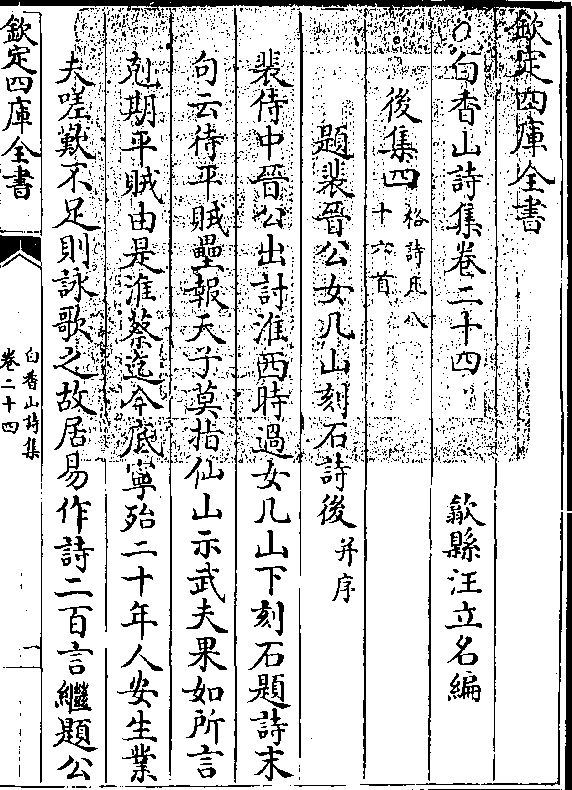 欽定四庫全書
白香山詩集卷二十四
歙縣汪立名編
後集四
格詩凡八
十六首
題裴晉公女几山刻石詩後
并序
裴侍中晉公出討淮西時過女几山下刻石題詩末
句云待平賊壘報天子莫指仙山示武夫果如所言
剋期平賊由是淮蔡迄今底寧殆二十年人安生業
夫嗟歎不足則詠歌之故居易作詩二百言繼題公
欽定四庫全書
白香山詩集
卷二十四
一